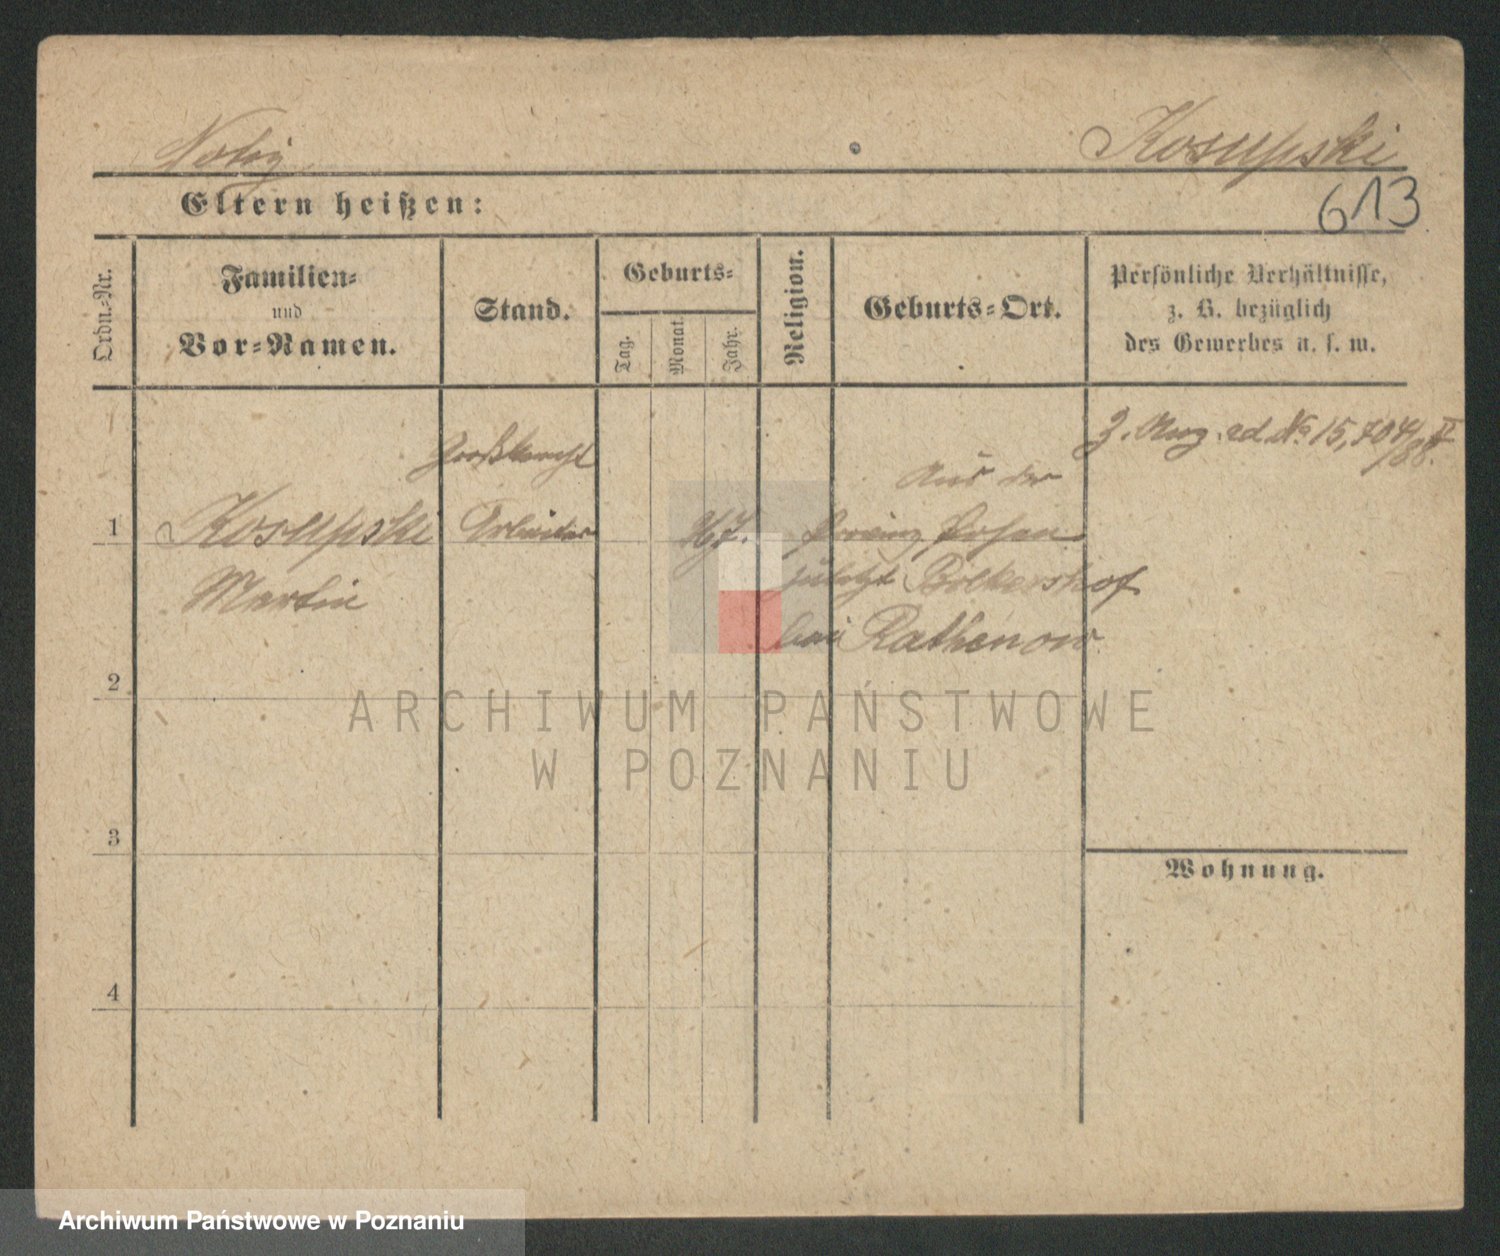 Notiz
Kosupski
613
Eltern heißen:
Ordn.-Nr.
Familien-
und
Vor-Namen.
Stand.
Geburts-
Tag.
Monat.
Jahr.
Religion.
Geburts-Ort.
Persönliche Verhältnisse,
z. B. bezüglich
des Gewerbes u. s. w.
1
Kosupski
Martin
Großknecht
Arbeiter
Aus der
Provinz Posen
zuletzt Bölkershof
bei Rathenow
z. Aug. ad No 15,704/88. II
2
3
4
Wohnung.
ARCHIWUM PAŃSTWOWE
W POZNANIU
Archiwum Państwowe w Poznaniu